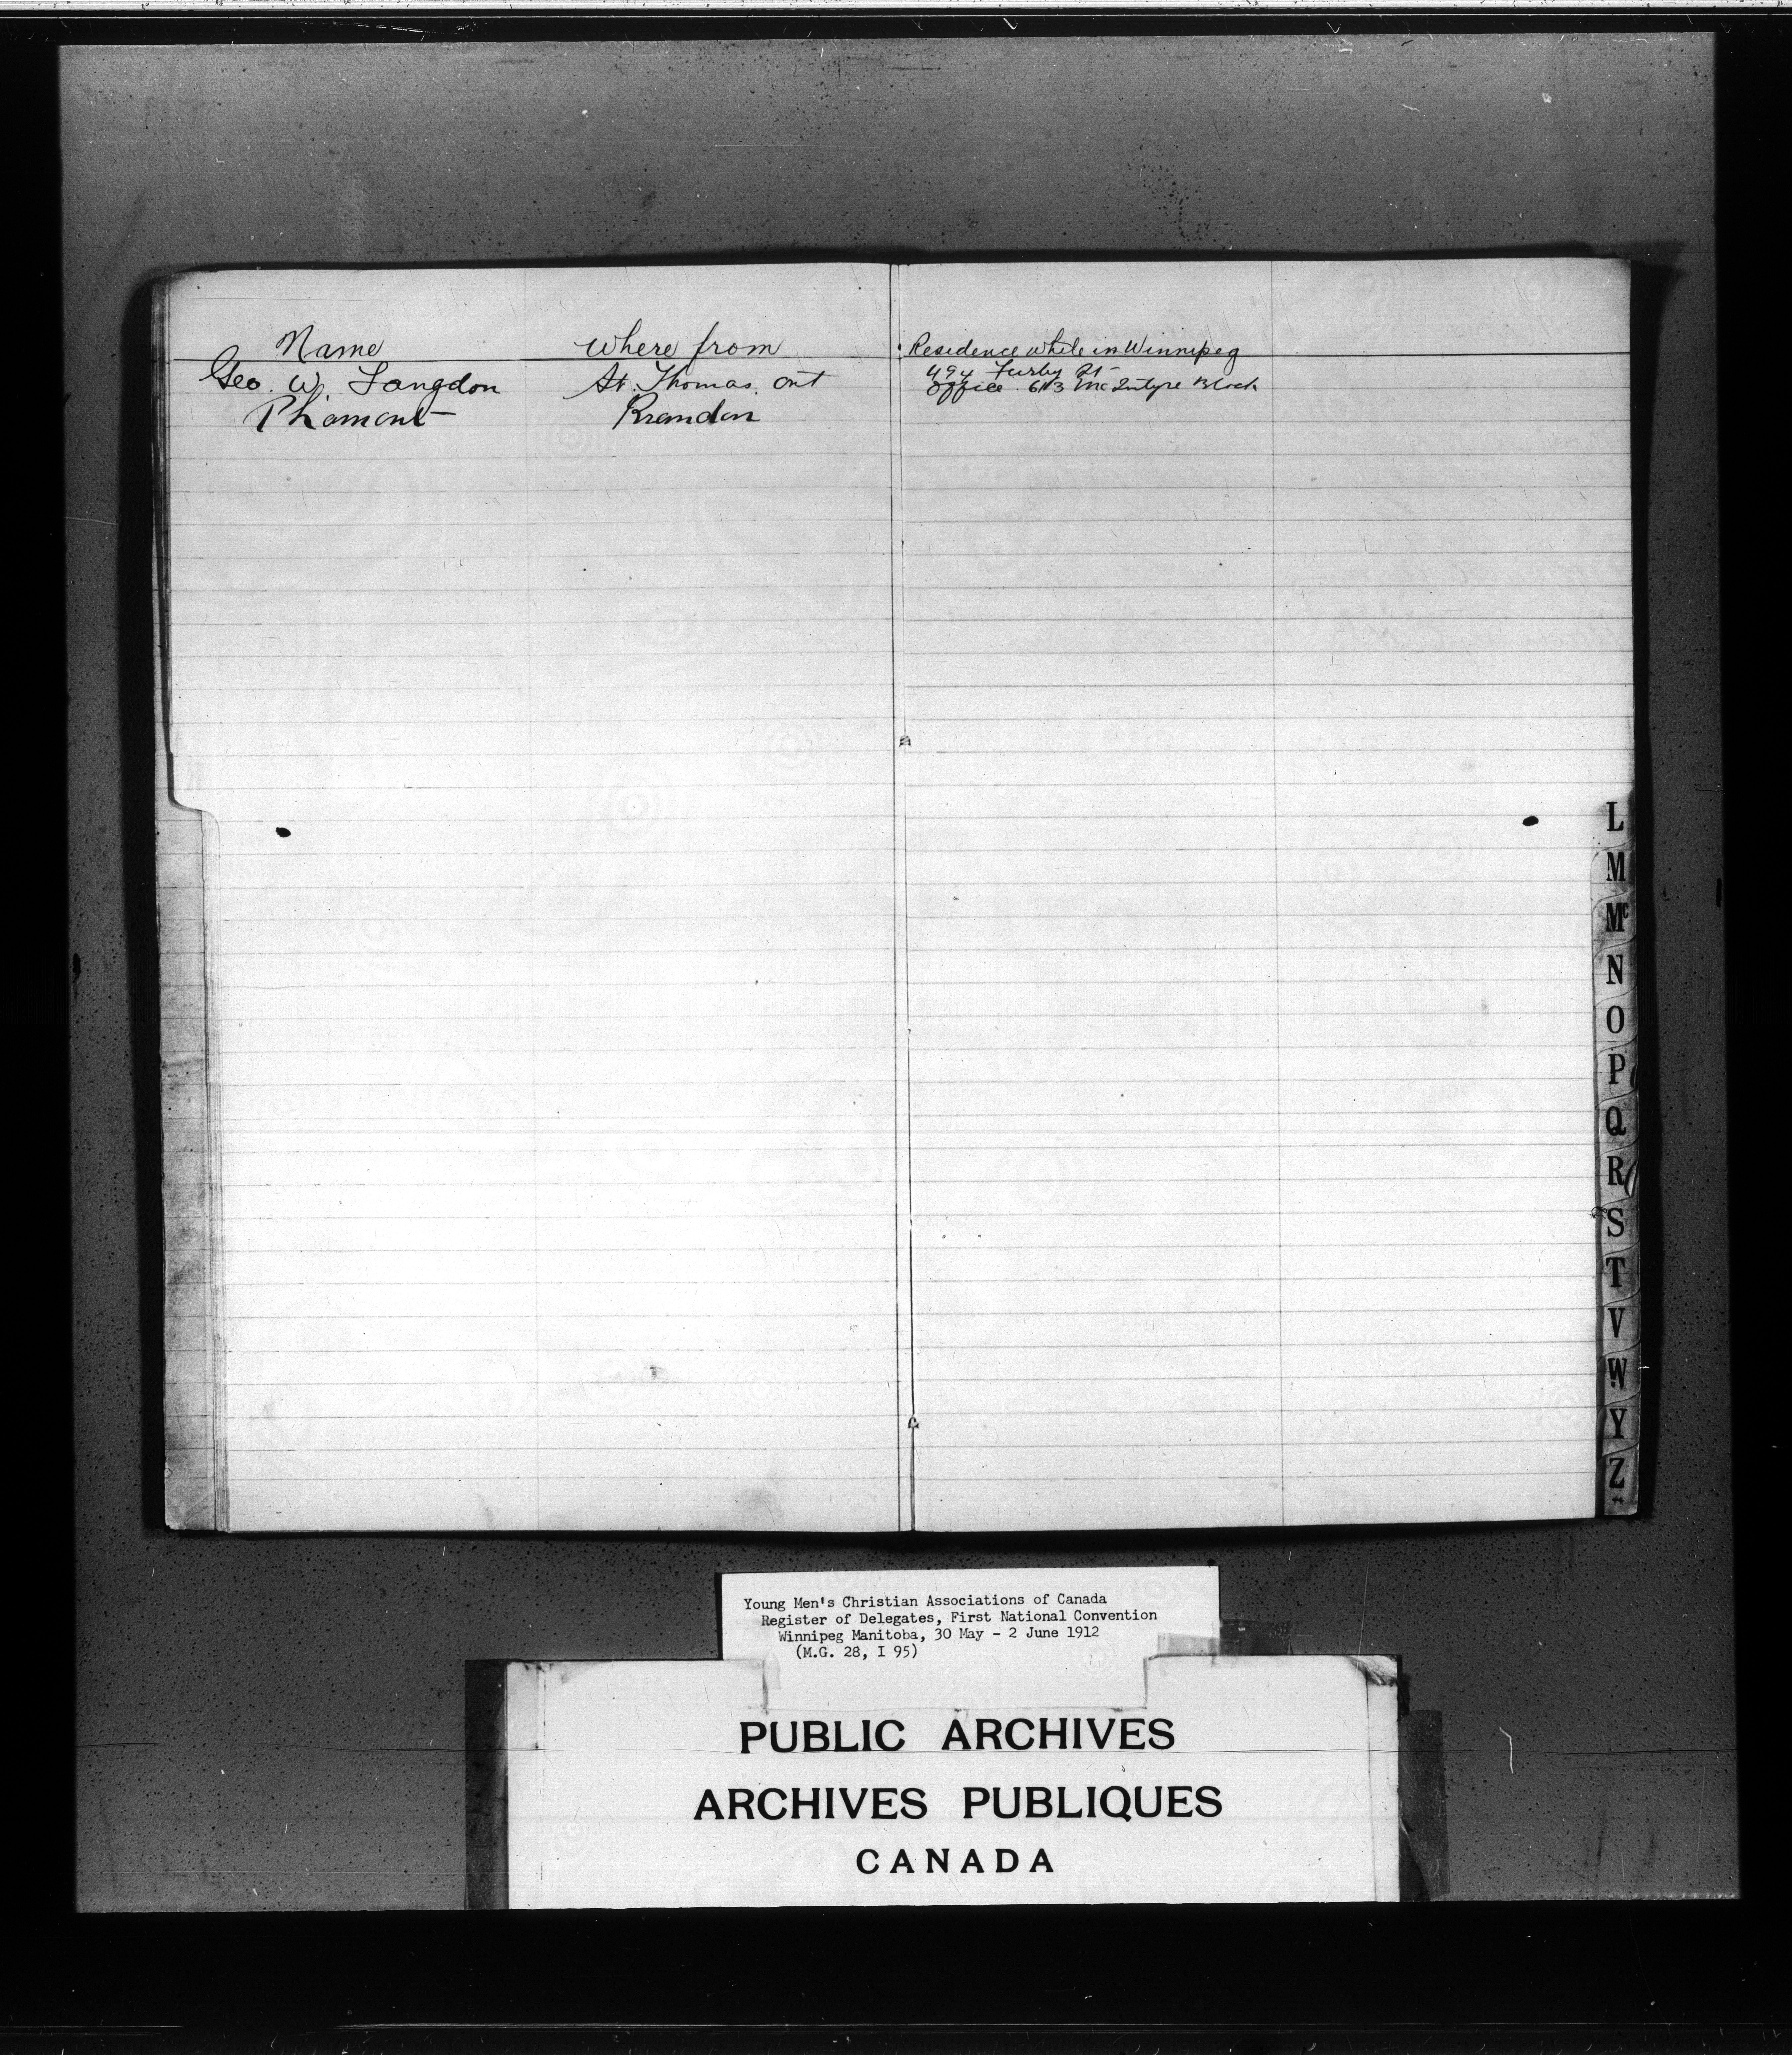 Name where from Residence while in Winnipeg
Geo. W. Langdon St. Thomas. Ont 494 Furby St
Office 613 McIntyre Block
Brandon
L
M
Mc
N
O
P
Q
R
S
T
V
W
Y
Z
Young Men's Christian Associations of Canada
Register of Delegates, First National Convention
Winnipeg Manitoba, 30 May - 2 June 1912
(M.G. 28, I 95)
PUBLIC ARCHIVES
ARCHIVES PUBLIQUES
CANADA